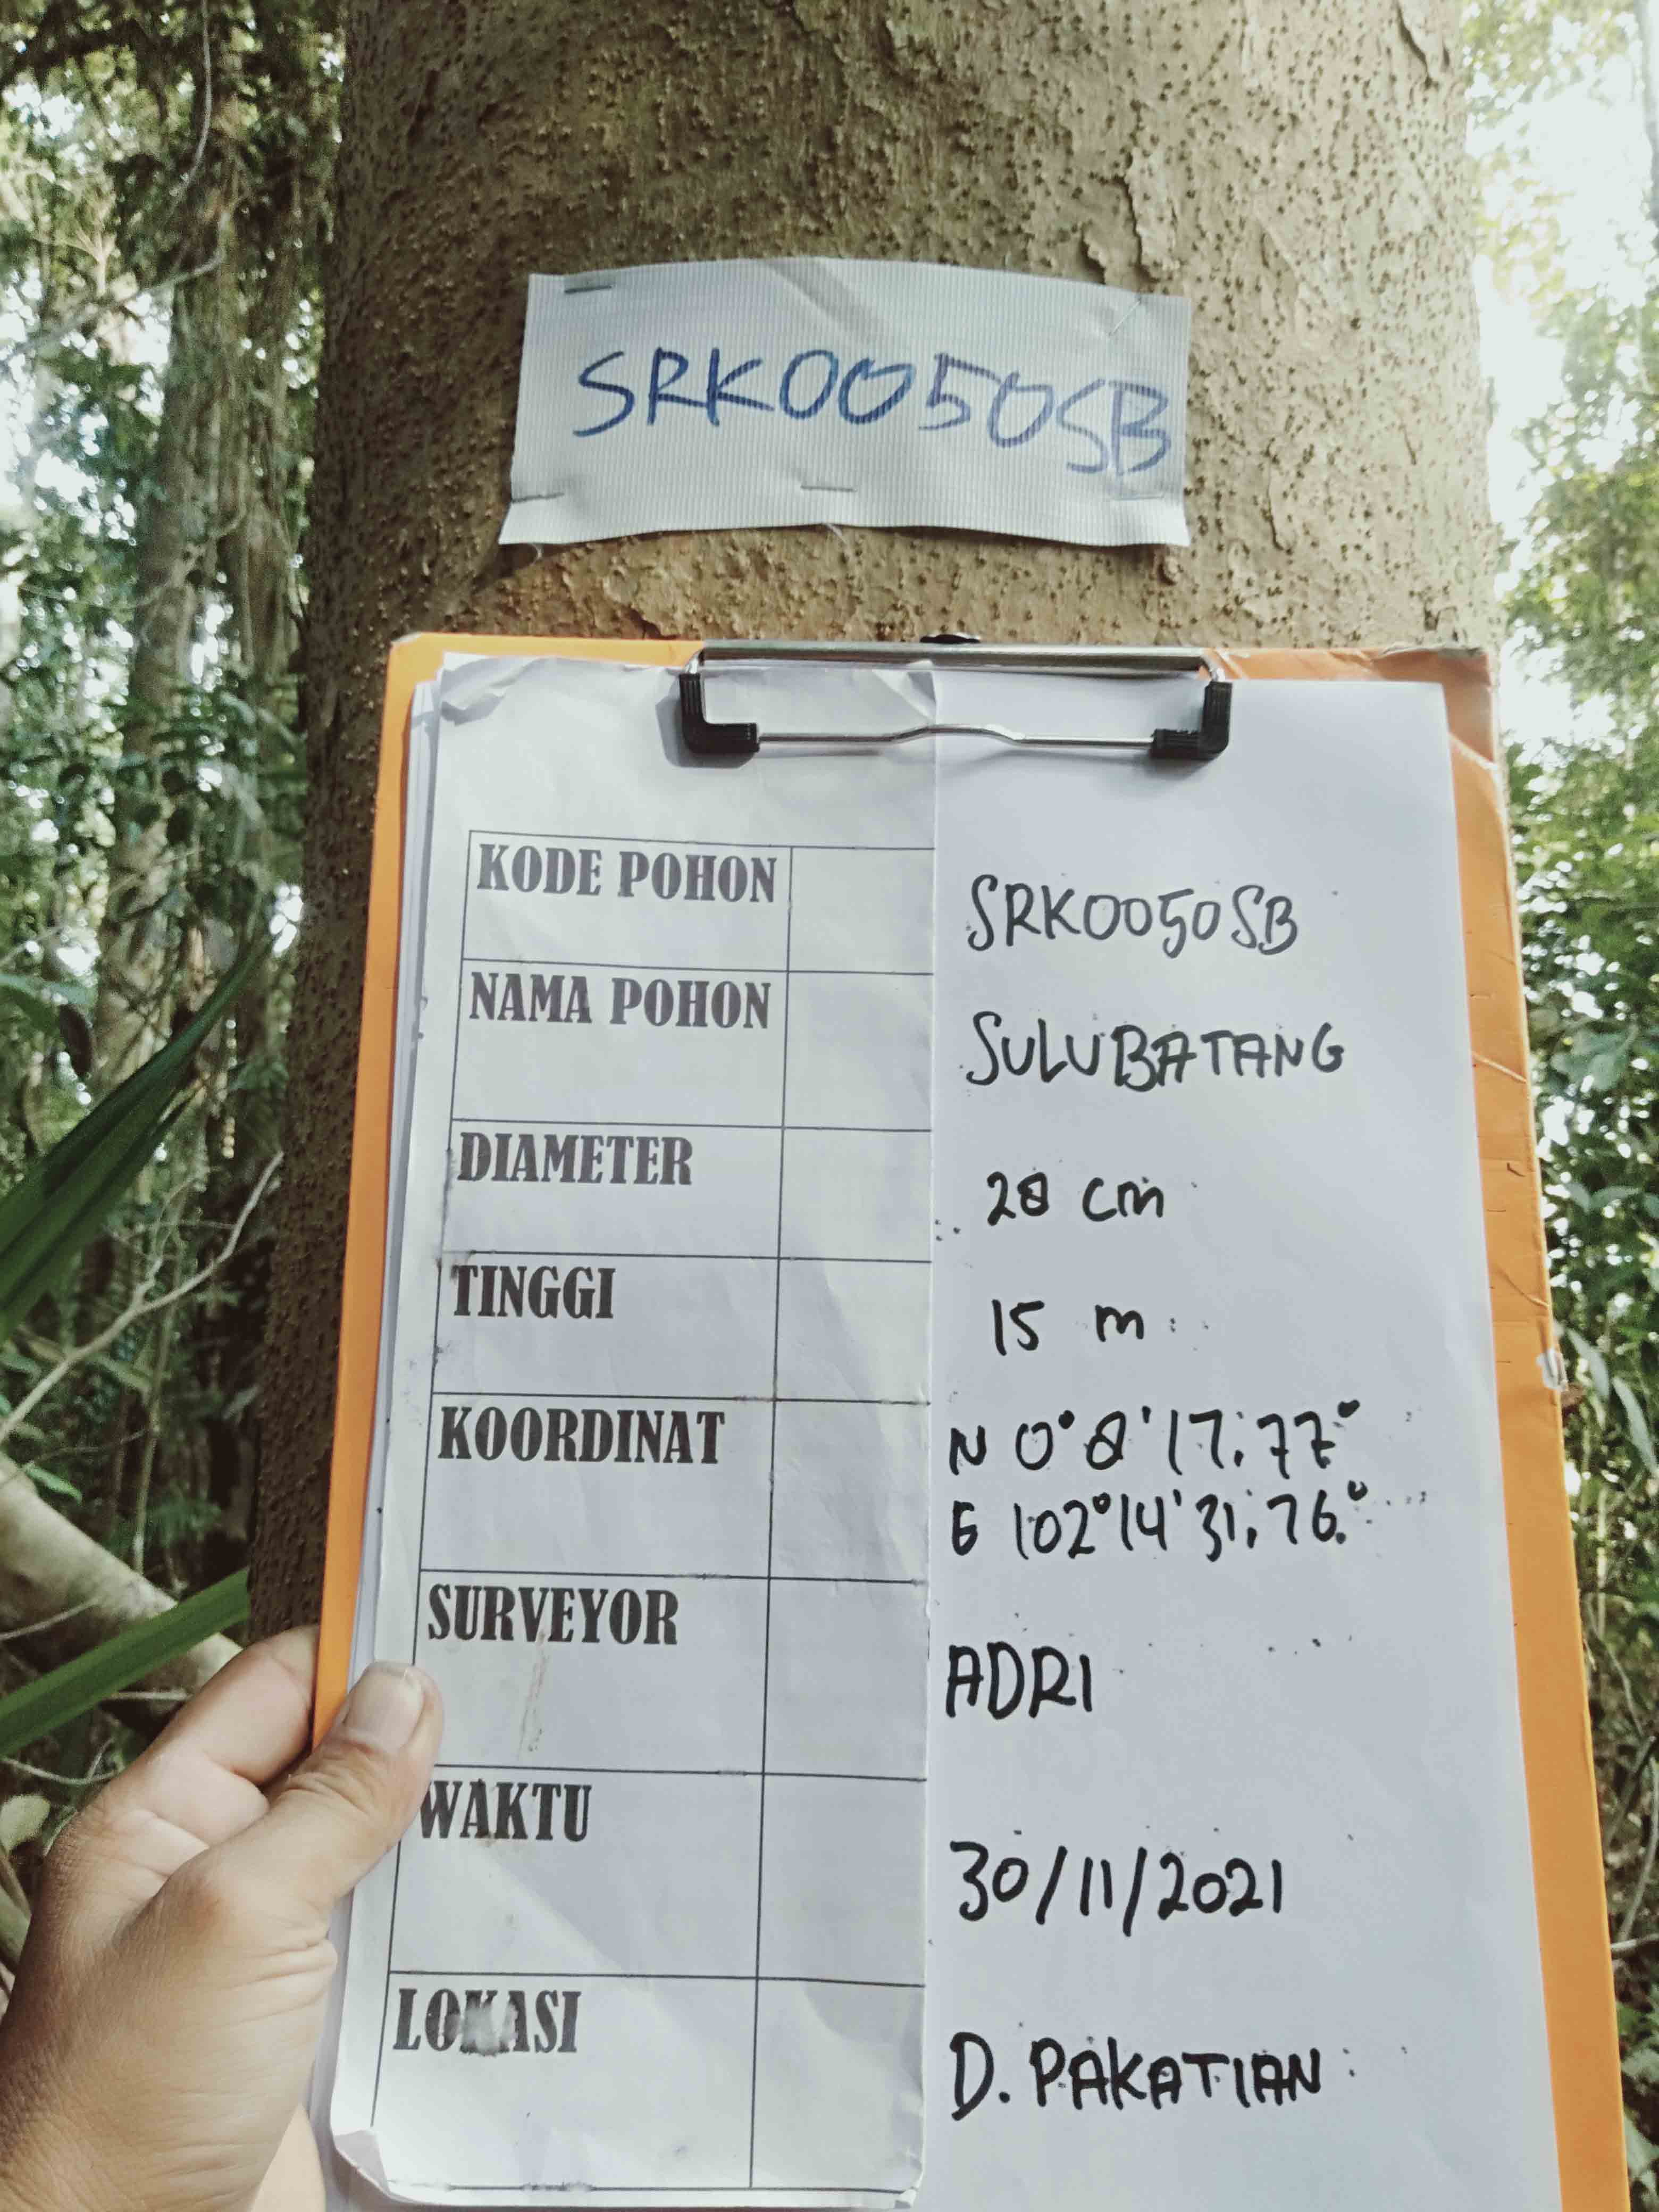 SRK0050SB
KODE POHON SRK0050SB
NAMA POHON SULUBATANG
DIAMETER 28 cm
TINGGI 15 m
KOORDINAT N 0°8'17.77"
E 102°14'31.76"
SURVEYOR ADRI
WAKTU 30/11/2021
LOKASI D. PAKATIAN